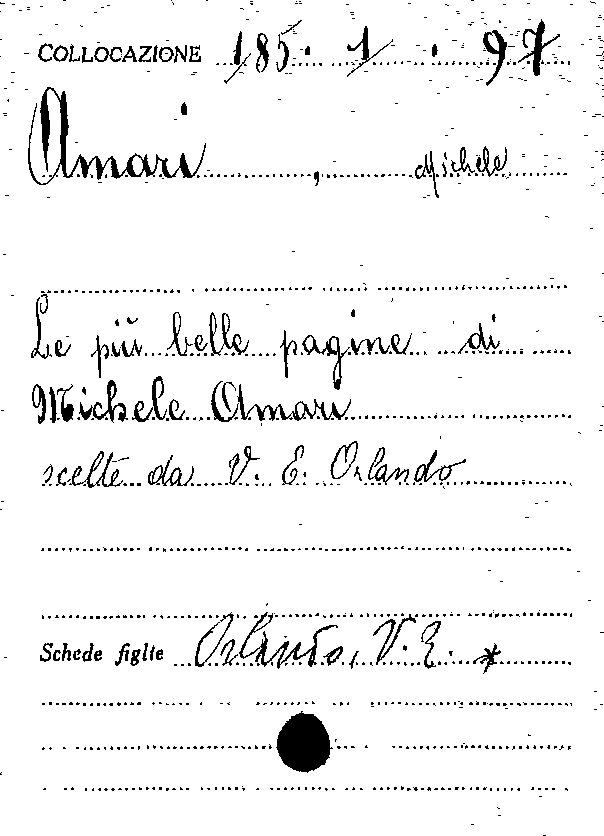 COLLOCAZIONE 185. 1. 97
Amari, Michele
Le più belle pagine di
Michele Amari
scelte da V. E. Orlando
Schede figlie Orlando, V. E. *